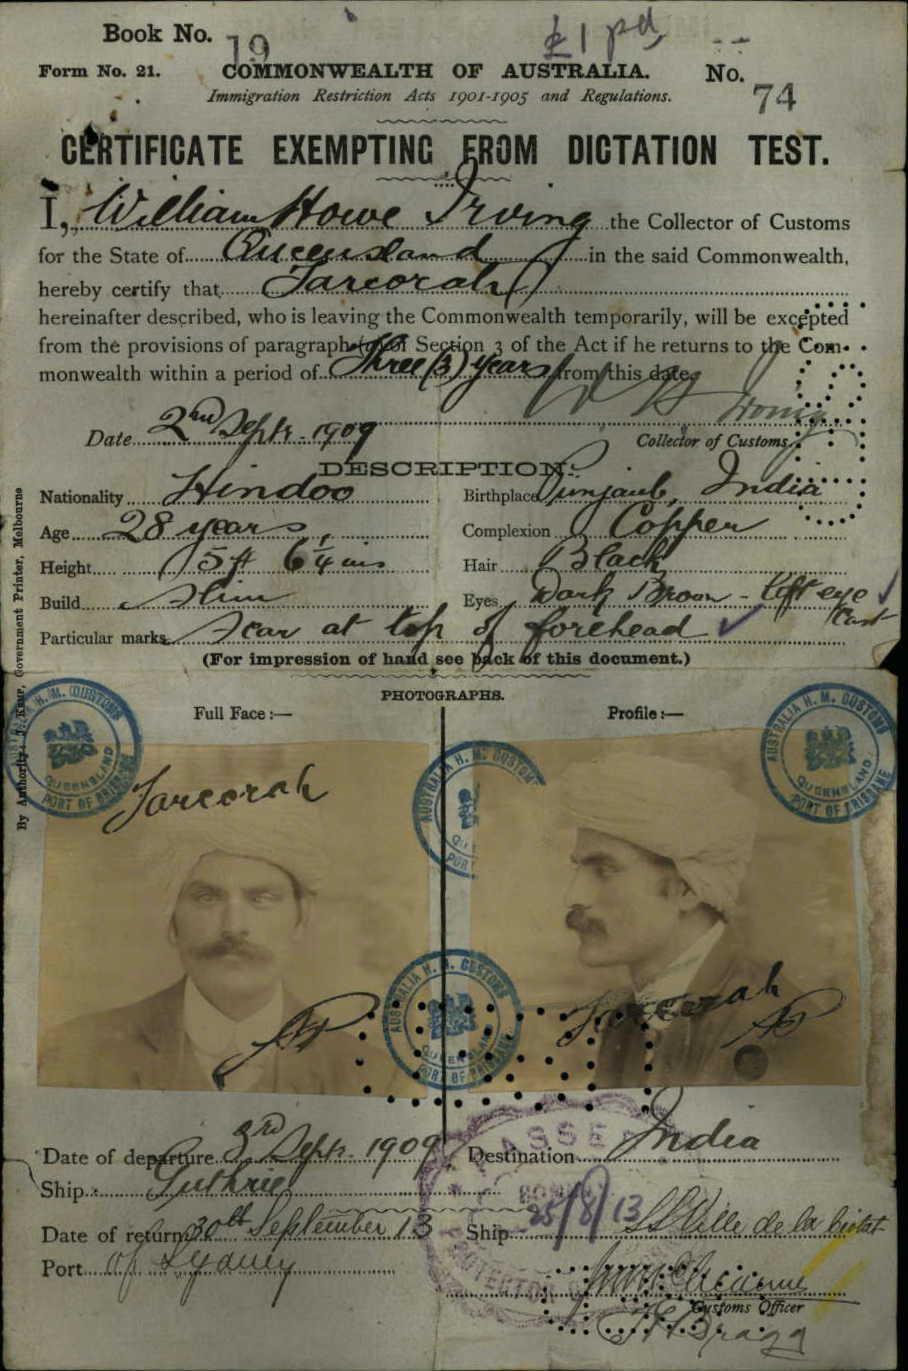 Book No. 19 £1 pd
Form No. 21. COMMONWEALTH OF AUSTRALIA. No. 74
Immigration Restriction Acts 1901-1905 and Regulations.
CERTIFICATE EXEMPTING FROM DICTATION TEST.
I, William Howe Irving the Collector of Customs
for the State of Queensland in the said Commonwealth,
hereby certify that Tareorah
hereinafter described, who is leaving the Commonwealth temporarily, will be excepted
from the provisions of paragraph of Section 3 of the Act if he returns to the Com-
monwealth within a period of Three (3) years from this date.
W H Irving
Date 2nd Septr. 1909 Collector of Customs.
DESCRIPTION.
Nationality Hindoo Birthplace Punjaub, India
Age 28 years Complexion Copper
Height 5 ft 6 1/4 ins Hair Black
Build Slim Eyes Dark Brown - left eye Cast
Particular marks Scar at top of forehead
(For impression of hand see back of this document.)
PHOTOGRAPHS.
Full Face :— Profile :—
By Authority: J. Kemp, Government Printer, Melbourne
AUSTRALIA H. M. CUSTOMS QUEENSLAND PORT OF BRISBANE
AUSTRALIA H. M. CUSTOMS PORT
AUSTRALIA H. M. CUSTOMS QUEENSLAND PORT OF BRISBANE
Tareorah
AUSTRALIA H. M. CUSTOMS QUEENSLAND PORT OF BRISBANE
Tareorah
Date of departure 3rd Septr. 1909 Destination India
Ship Guthrie
PROTECTOR
25/8/13
Date of return 30th September 13 Ship SS Ville de la Ciotat
Port of Sydney
Customs Officer